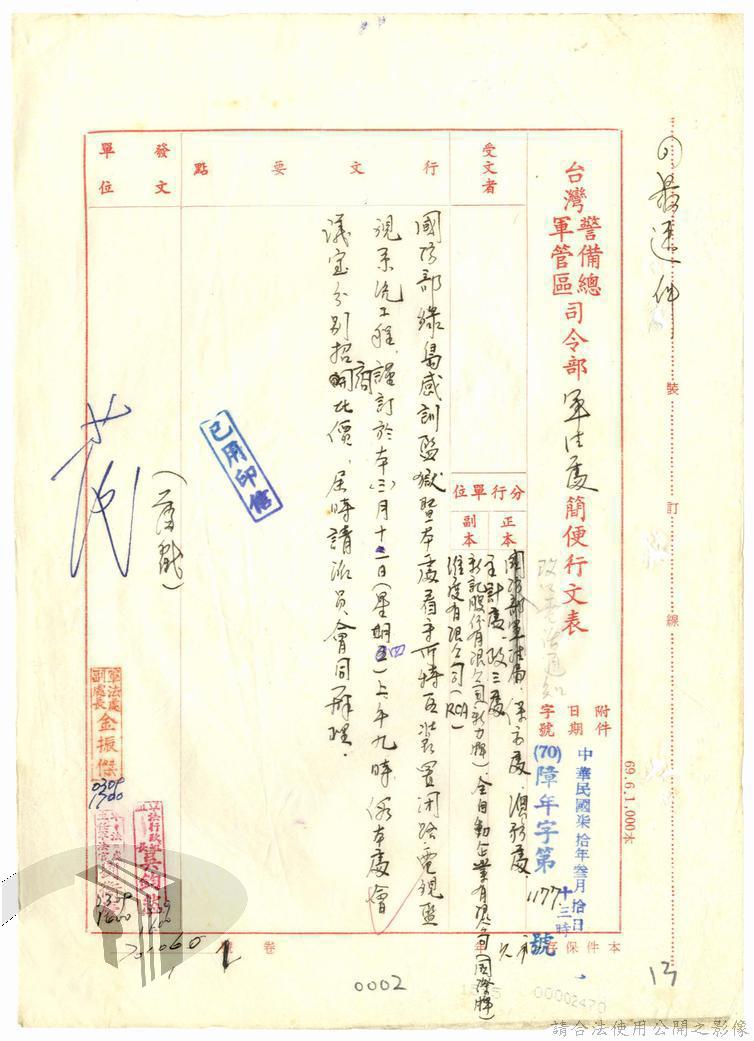 最速件
裝訂線
台灣警備總軍管區司令部軍法處簡便行文表
附件
日期 中華民國柒拾年叁月拾日十三時
字號 (70)障年字第1177號
本件保存 年
69.6.1,000本
受文者
分行單位
正本 國防部軍法局、保安處、
主計處、政三處
副本 新訊股份有限公司(新力牌)、全自動企業有限公司(國際牌)
維度有限公司(RCA)
行文要點
國防部綠島感訓監獄暨本處看守所特區裝置閉路電視監
視系統工程,謹訂於本(三)月十二日(星期四)上午九時,假本處會
議室分別招商比價,屆時請派員會同辦理。
發文單位
已用印信
軍法處副處長金振傑
0309
1700
1600
卷
0002
13
00002470
請合法使用公開之影像